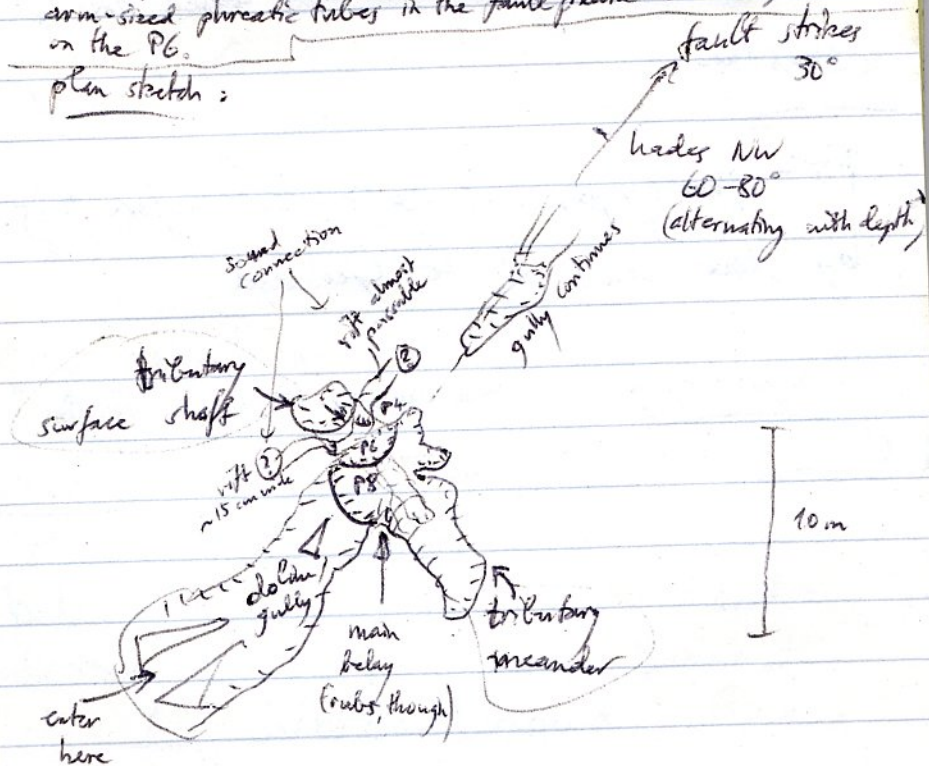 arm-sized phreatic tubes in the fault plane
on the P6.
plan sketch :
fault strikes
30°
hades NW
60-80°
(alternating with depth)
sound
connection
rift almost
passable
?
gully continues
tributary
surface shaft
P4
P6
P8
rift ?
~15 cm wide
10 m
doline
gully
main
belay
(rubs, though)
tributary
meander
enter
here